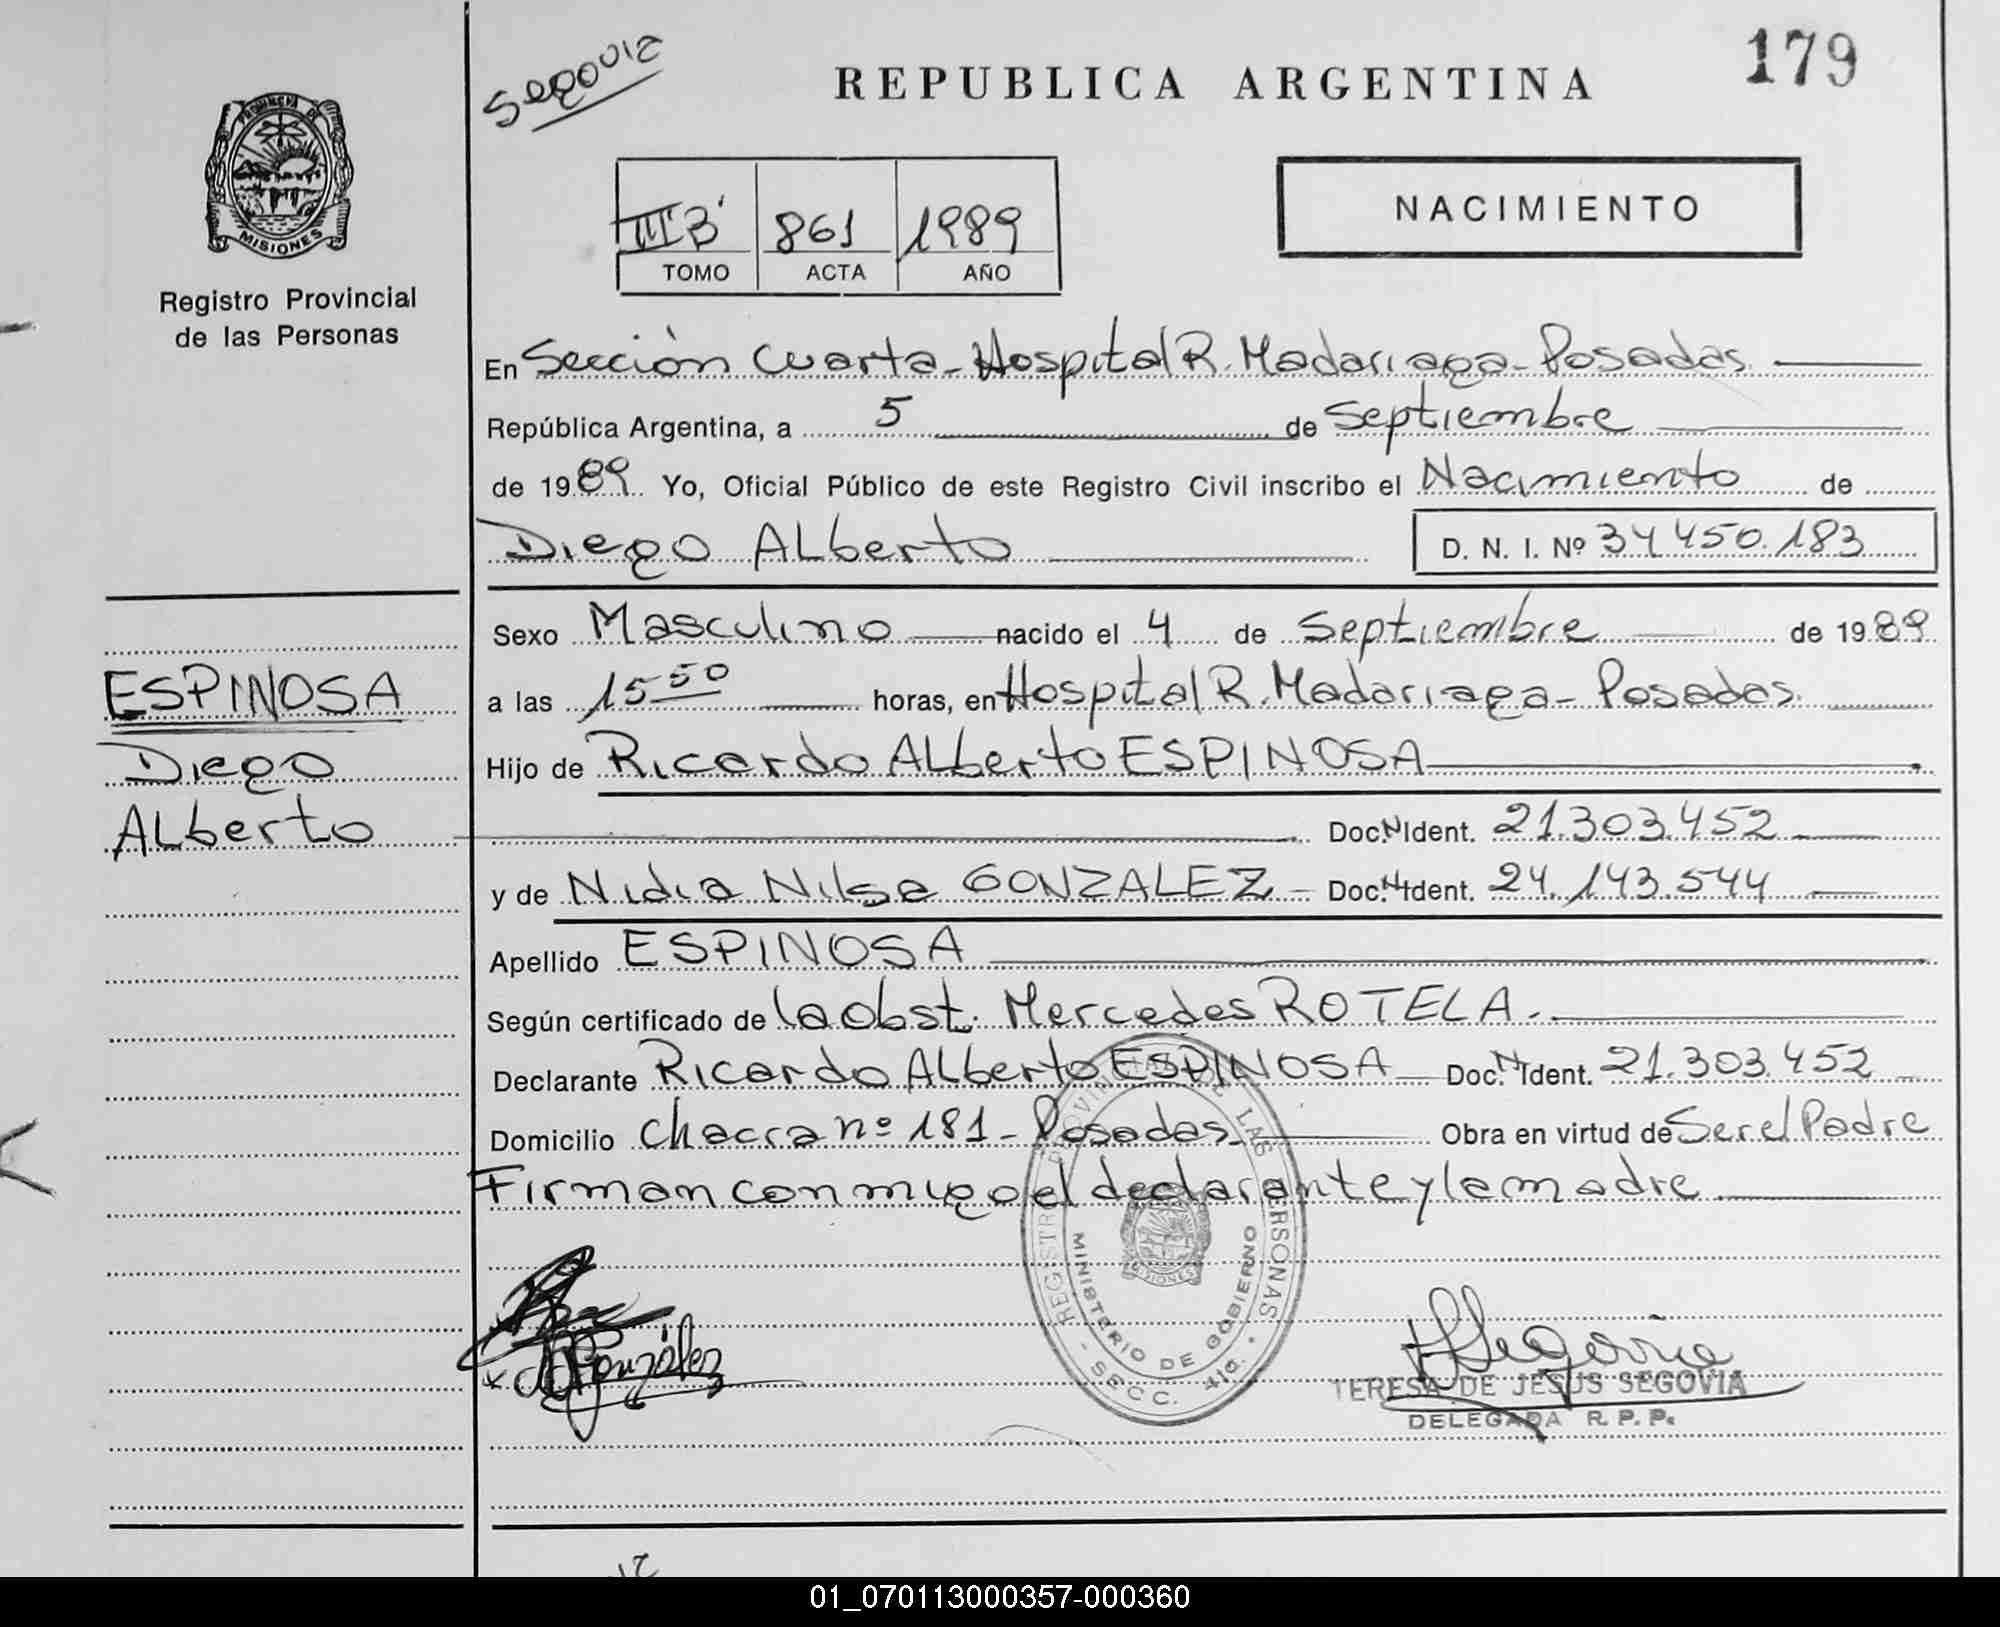 Segovia
REPUBLICA ARGENTINA
179
PROVINCIA DE
MISIONES
Registro Provincial
de las Personas
III "B" 861 1989
TOMO ACTA AÑO
NACIMIENTO
En Sección Cuarta - Hospital R. Madariaga - Posadas
República Argentina, a 5 de Septiembre
de 1989 Yo, Oficial Público de este Registro Civil inscribo el Nacimiento de
Diego ALberto D. N. I. Nº 34450.183
Sexo Masculino nacido el 4 de Septiembre de 1989
a las 15 50 horas, en Hospital R. Madariaga - Posadas.
Hijo de Ricardo ALberto ESPINOSA
Doc. N Ident. 21.303.452
y de Nidia Nilsa GONZALEZ - Doc. N Ident. 24.143.544
Apellido ESPINOSA
Según certificado de la obst. Mercedes ROTELA.
Declarante Ricardo ALberto ESPINOSA Doc. N Ident. 21.303.452
Domicilio Chacra nº 181 - Posadas - Obra en virtud de Ser el Padre
Firman conmigo el declarante y la madre
ESPINOSA
Diego
ALberto
REGISTRO PROVINCIAL DE LAS PERSONAS
MINISTERIO DE GOBIERNO
MISIONES
- SECC. 4ta. -
González
Segovia
TERESA DE JESUS SEGOVIA
DELEGADA R. P. P.
01_070113000357-000360